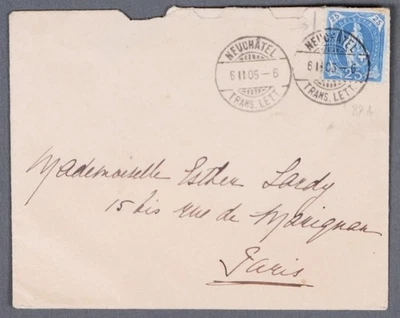 NEUCHÂTEL
6 II 05 - 6
TRANS. LETT.
NEUCHÂTEL
6 II 05 - 6
TRANS. LETT.
25
25
Mademoiselle Esther Lardy
15 bis rue de Marignan
Paris